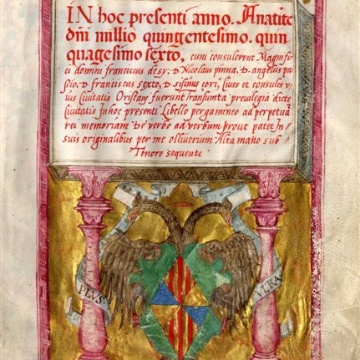 IN hoc presenti anno. Anatite
dñi millio quingentesimo. quin
quagesimo sexto, cum consulerent Magnifi
ci domini franciscus desy, D Nicolaus pinna, D angelus pa
D franciscus sexto, D sisinio cori, Cives et consules
ius Civitatis Oristany fuerunt transumta previlegia dicte
Civitatis In hoc presenti Libello pergameneo ad perpetuã
rei memoriam De verbo ad verbum prout patet In
suis originalibus per me ollivorium Alta mano sub
Thenore sequente
PLVS
VLRA